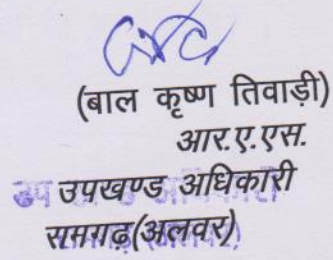 (बाल कृष्ण तिवाड़ी)
आर.ए.एस.
उपखण्ड अधिकारी
रामगढ़(अलवर)